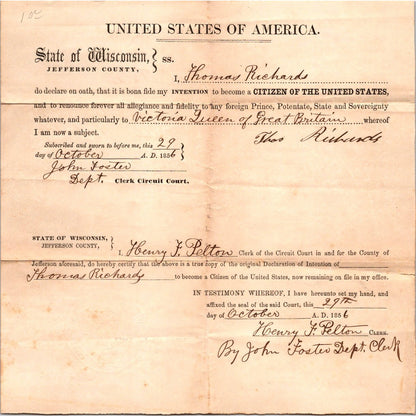 1 00
UNITED STATES OF AMERICA.
State of Wisconsin, } ss.
JEFFERSON COUNTY,
I, Thomas Richards
do declare on oath, that it is bona fide my INTENTION to become a CITIZEN OF THE UNITED STATES,
and to renounce forever all allegiance and fidelity to any foreign Prince, Potentate, State and Sovereignty
whatever, and particularly to Victoria Queen of Great Britain whereof
I am now a subject. Thos Richards
Subscribed and sworn to before me, this 29
day of October A. D. 1856
John Foster
Dept. Clerk Circuit Court.
STATE OF WISCONSIN, }
JEFFERSON COUNTY,
I, Henry F. Pelton Clerk of the Circuit Court in and for the County of
Jefferson aforesaid, do hereby certify that the above is a true copy of the original Declaration of Intention of
Thomas Richards to become a Citizen of the United States, now remaining on file in my office.
IN TESTIMONY WHEREOF, I have hereunto set my hand, and
affixed the seal of the said Court, this 29th
day of October A. D. 1856
Henry F Pelton CLERK.
By John Foster Dept. Clerk